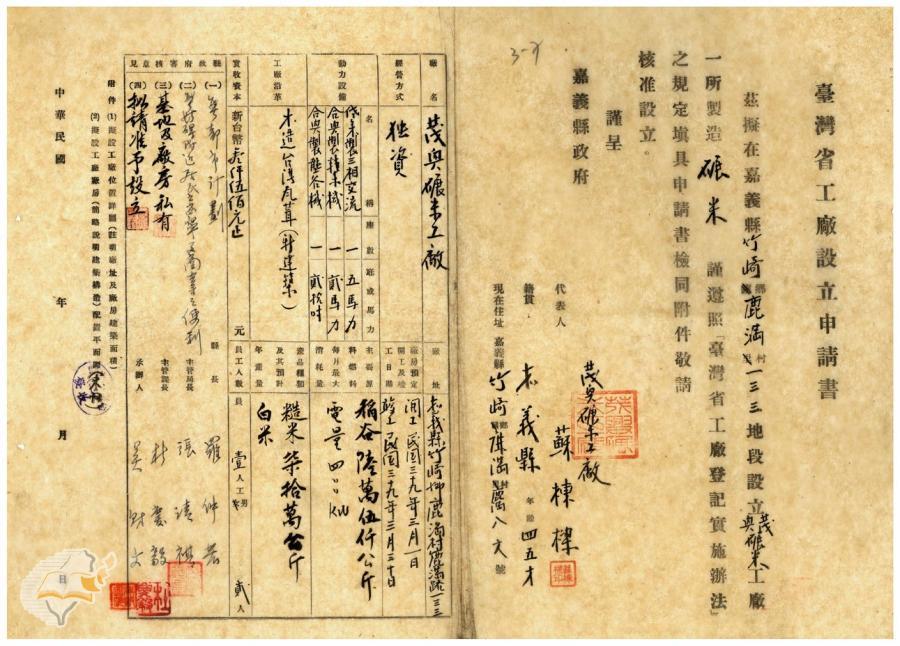 臺灣省工廠設立申請書
茲擬在嘉義縣竹崎鄉鹿滿村一三三地段設立茂興碾米工廠
一所製造 碾米 謹遵照「臺灣省工廠登記實施辦法」
之規定填具申請書檢同附件敬請
核准設立。
謹呈
嘉義縣政府
茂興碾米工廠
代表人 蘇棟樑
籍貫 嘉義縣 年齡 四五才
現在住址 嘉義縣竹崎鄉鹿滿村
廠名 茂興碾米工廠
廠址 嘉義縣竹崎鄉鹿滿村鹿滿 一三三
經營方式 獨資
廠房預定開工及竣工日期
開工 民國三九年三月一日
竣工 民國三九年三月三十日
動力設備
名稱 座數 匹或馬力
三相交流 一 五馬力
合興製 一 貳馬力
合興製 一 貳拾吋
主要原料燃料每月最大消耗量
稻谷陸萬伍仟公斤
電量四〇〇kW
工廠沿革 木造台灣瓦葺(新建築)
產品種類及其預計年產量
糙米柒拾萬公斤
白米
實收資本 新台幣叁仟伍佰元正 元
員工人數 員 壹人 工 男 女 貳人
縣政府審核意見
(一)無都市計劃
(二)
(三)基地及廠房私有
(四)擬請准予設立
縣長
主管局長
主管課長
承辦人
附件(1)擬設工廠位置詳圖(註明廠址及廠房建築面積)
(2)擬設工廠廠房(簡略說明建築構造)配置平面圖
中華民國 年 月 日